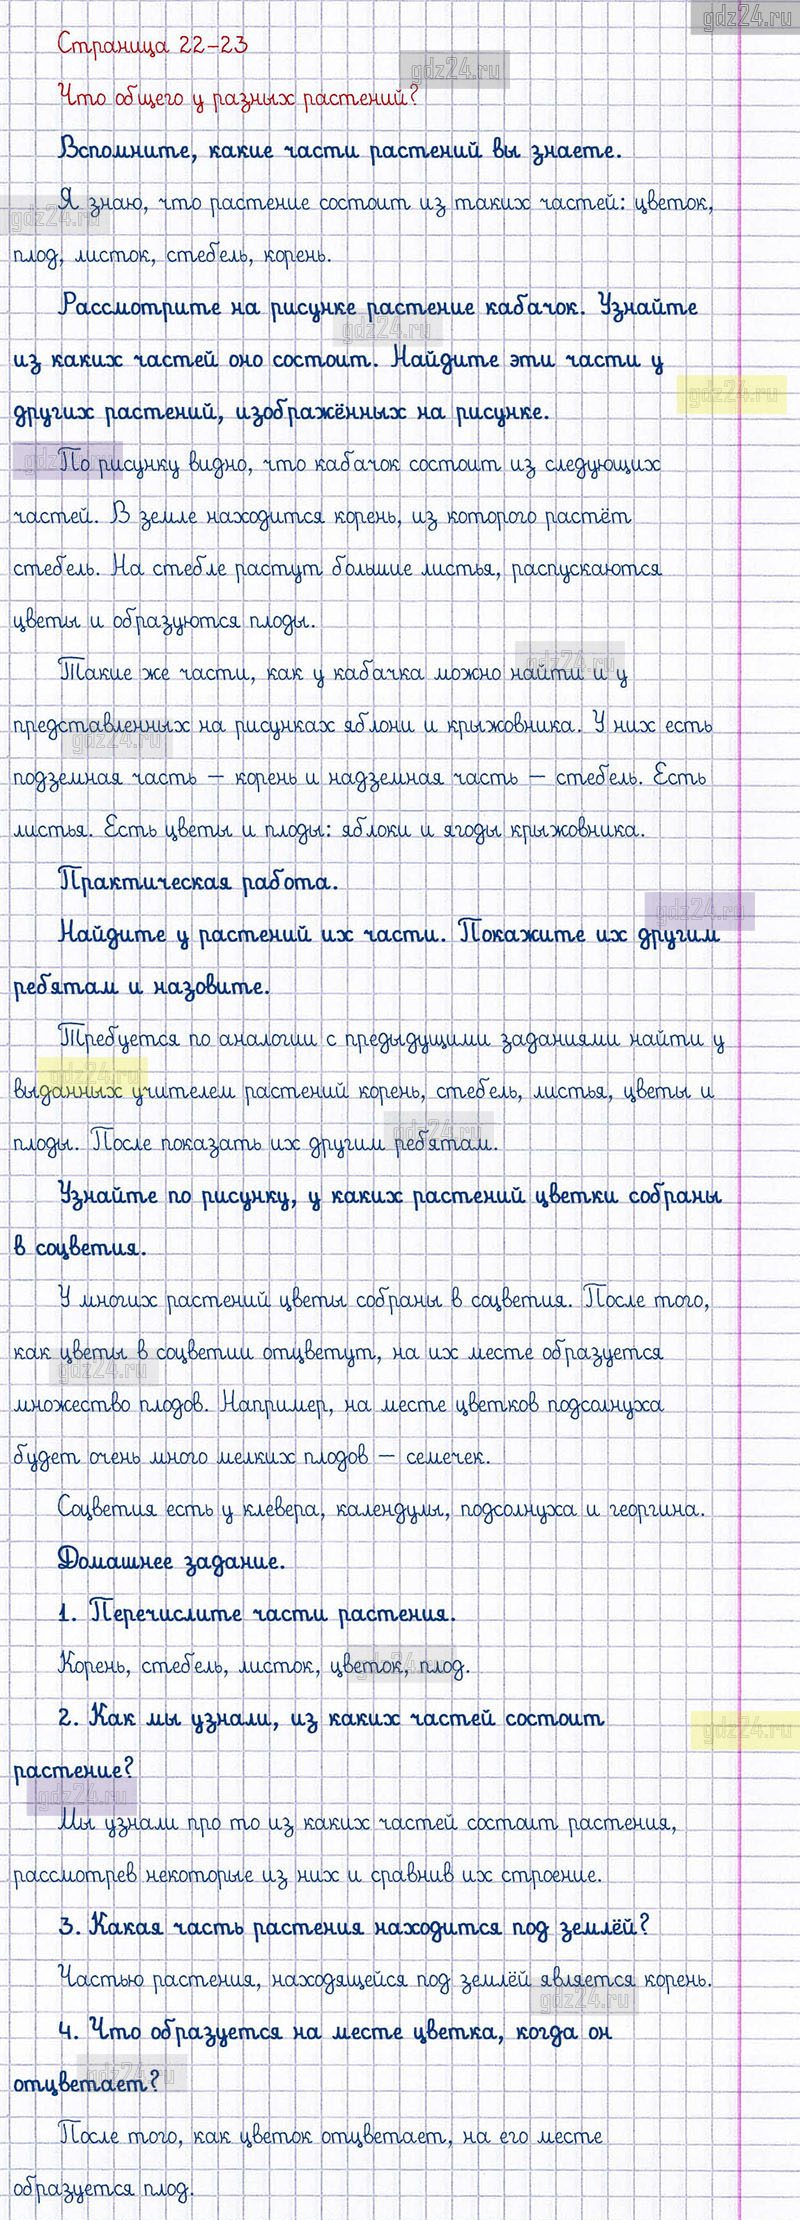 gdz24.ru
Страница 22-23
gdz24.ru
Что общего у разных растений?
Вспомните, какие части растений вы знаете.
Я знаю, что растение состоит из таких частей: цветок,
gdz24.ru
плод, листок, стебель, корень.
Рассмотрите на рисунке растение кабачок. Узнайте
gdz24.ru
из каких частей оно состоит. Найдите эти части у
gdz24.ru
других растений, изображённых на рисунке.
gdz24.ru
По рисунку видно, что кабачок состоит из следующих
частей. В земле находится корень, из которого растёт
стебель. На стебле растут большие листья, распускаются
цветы и образуются плоды.
gdz24.ru
Такие же части, как у кабачка можно найти и у
представленных на рисунках яблони и крыжовника. У них есть
gdz24.ru
подземная часть – корень и надземная часть – стебель. Есть
листья. Есть цветы и плоды: яблоки и ягоды крыжовника.
Практическая работа.
gdz24.ru
Найдите у растений их части. Покажите их другим
ребятам и назовите.
Требуется по аналогии с предыдущими заданиями найти у
gdz24.ru
выданных учителем растений корень, стебель, листья, цветы и
gdz24.ru
плоды. После показать их другим ребятам.
Узнайте по рисунку, у каких растений цветки собраны
в соцветия.
У многих растений цветы собраны в соцветия. После того,
как цветы в соцветии отцветут, на их месте образуется
gdz24.ru
множество плодов. Например, на месте цветков подсолнуха
будет очень много мелких плодов – семечек.
Соцветия есть у клевера, календулы, подсолнуха и георгина.
Домашнее задание.
1. Перечислите части растения.
Корень, стебель, листок, цветок, плод.
gdz24.ru
2. Как мы узнали, из каких частей состоит
gdz24.ru
растение?
gdz24.ru
Мы узнали про то из каких частей состоит растения,
рассмотрев некоторые из них и сравнив их строение.
3. Какая часть растения находится под землёй?
Частью растения, находящейся под землёй является корень.
gdz24.ru
4. Что образуется на месте цветка, когда он
gdz24.ru
отцветает?
После того, как цветок отцветает, на его месте
образуется плод.